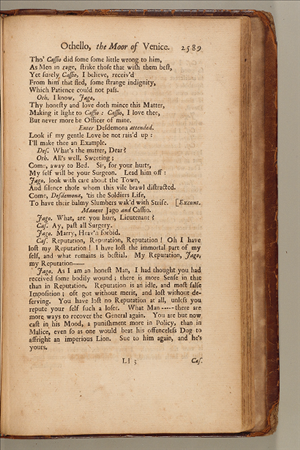 Othello, the Moor of Venice. 2589
Tho' Cassio did some some little wrong to him,
As Men in rage, strike those that wish them best,
Yet surely Cassio, I believe, receiv'd
From him that fled, some strange indignity,
Which Patience could not pass.
Oth. I know, Jago,
Thy honesty and love doth mince this Matter,
Making it light to Cassio: Cassio, I love thee,
But never more be Officer of mine.
Enter Desdemona attended.
Look if my gentle Love be not rais'd up:
I'll make thee an Example.
Des. What's the matter, Dear?
Oth. All's well, Sweeting;
Come, away to Bed. Sir, for your hurts,
My self will be your Surgeon. Lead him off:
Jago, look with care about the Town,
And silence those whom this vile brawl distracted.
Come, Desdemona, 'tis the Soldiers Life,
To have their balmy Slumbers wak'd with Strife. [Exeunt.
Manent Jago and Cassio.
Jago. What, are you hurt, Lieutenant?
Cas. Ay, past all Surgery.
Jago. Marry, Heav'n forbid.
Cas. Reputation, Reputation, Reputation! Oh I have
lost my Reputation! I have lost the immortal part of my
self, and what remains is bestial. My Reputation, Jago,
my Reputation——
Jago. As I am an honest Man, I had thought you had
received some bodily wound; there is more Sense in that
than in Reputation. Reputation is an idle, and most false
Imposition; oft got without merit, and lost without de-
serving. You have lost no Reputation at all, unless you
repute your self such a loser. What Man----there are
more ways to recover the General again. You are but now
cast in his Mood, a punishment more in Policy, than in
Malice, even so as one would beat his offenceless Dog to
affright an imperious Lion. Sue to him again, and he's
yours.
Ll 3 Cas.